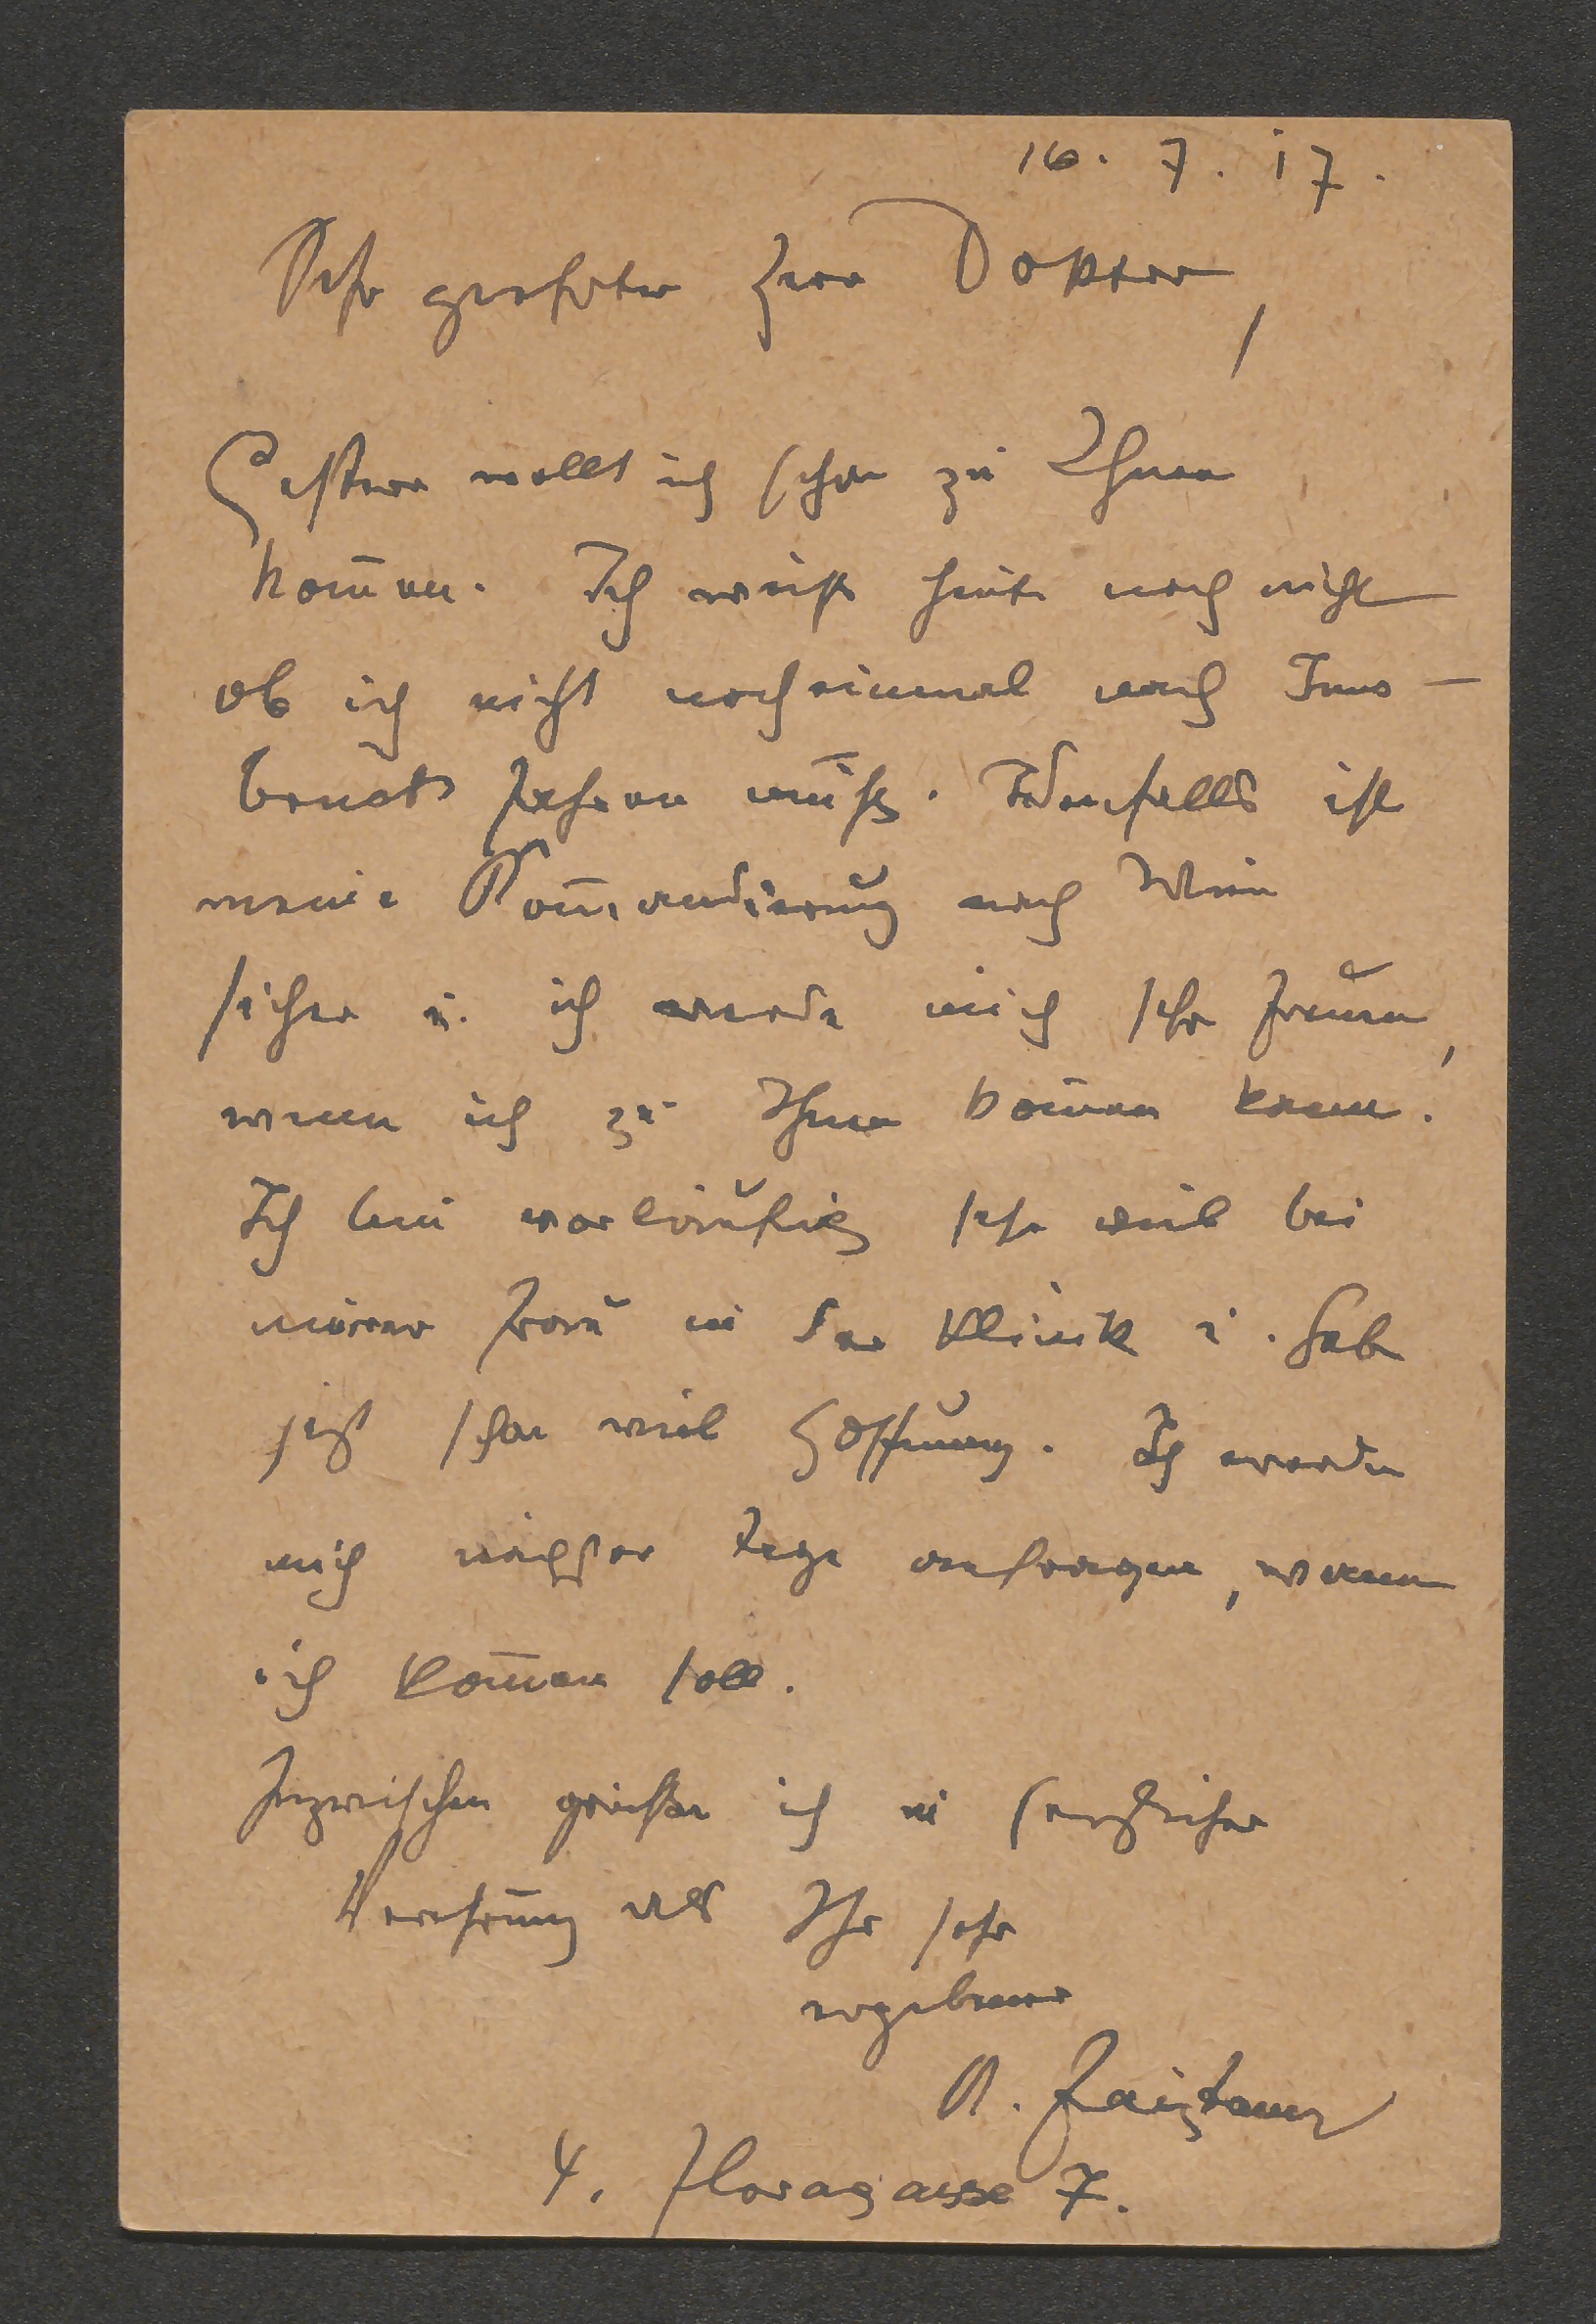 16. 7. 17.
Sehr geehrter Herr Doktor,
Gestern wollt ich schon zu Ihnen
kom̅en. Ich weiß heute noch nicht
ob ich nicht nocheinmal nach Inns-
bruck fahren muß. Jedenfalls ist
meine Kom̅andierung nach Wien
sicher u. ich werde mich sehr freuen,
wenn ich zu Ihnen kom̅en kann.
Ich bin vorläufig sehr viel bei
meiner Frau in der Klinik u. habe
jetzt schon viel Hoffnung. Ich werde
mich nächster Tage anfragen, wann
ich kom̅en soll.
Inzwischen grüße ich in herzlicher
Verehrung als Ihr sehr
ergebener
A.
4. Floragasse 7.